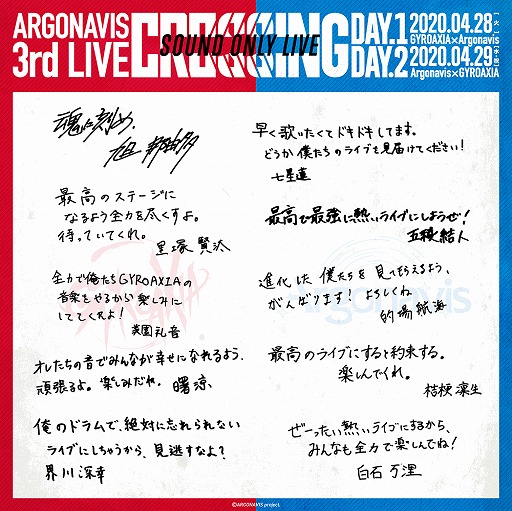 ARGONAVIS
3rd LIVE
CROSSING
SOUND ONLY LIVE
DAY.1 2020.04.28 [火]
GYROAXIA×Argonavis
DAY.2 2020.04.29 [水・祝]
Argonavis×GYROAXIA
魂に刻め。
旭 那由多
最高のステージに
なるよう全力を尽くすよ。
待っていてくれ。
里塚 賢汰
全力で俺たちGYROAXIAの
音楽をやるから楽しみに
しててくれよ!
美園礼音
オレたちの音でみんなが幸せになれるよう、
頑張るよ。楽しみだね。 曙 涼
俺のドラムで、絶対に忘れられない
ライブにしちゃうから、見逃すなよ?
界川 深幸
早く歌いたくてドキドキしてます。
どうか僕たちのライブを見届けてください!
七星蓮
最高で最強に熱いライブにしようぜ!
五稜結人
進化した僕たちを見てもらえるよう、
がんばります! よろしくね
的場航海
最高のライブにすると約束する。
楽しんでくれ。
桔梗 凛生
ぜーったい熱いライブにするから、
みんなも全力で楽しんでね!
白石 万浬
GYROAXIA
Argonavis
©ARGONAVIS project.